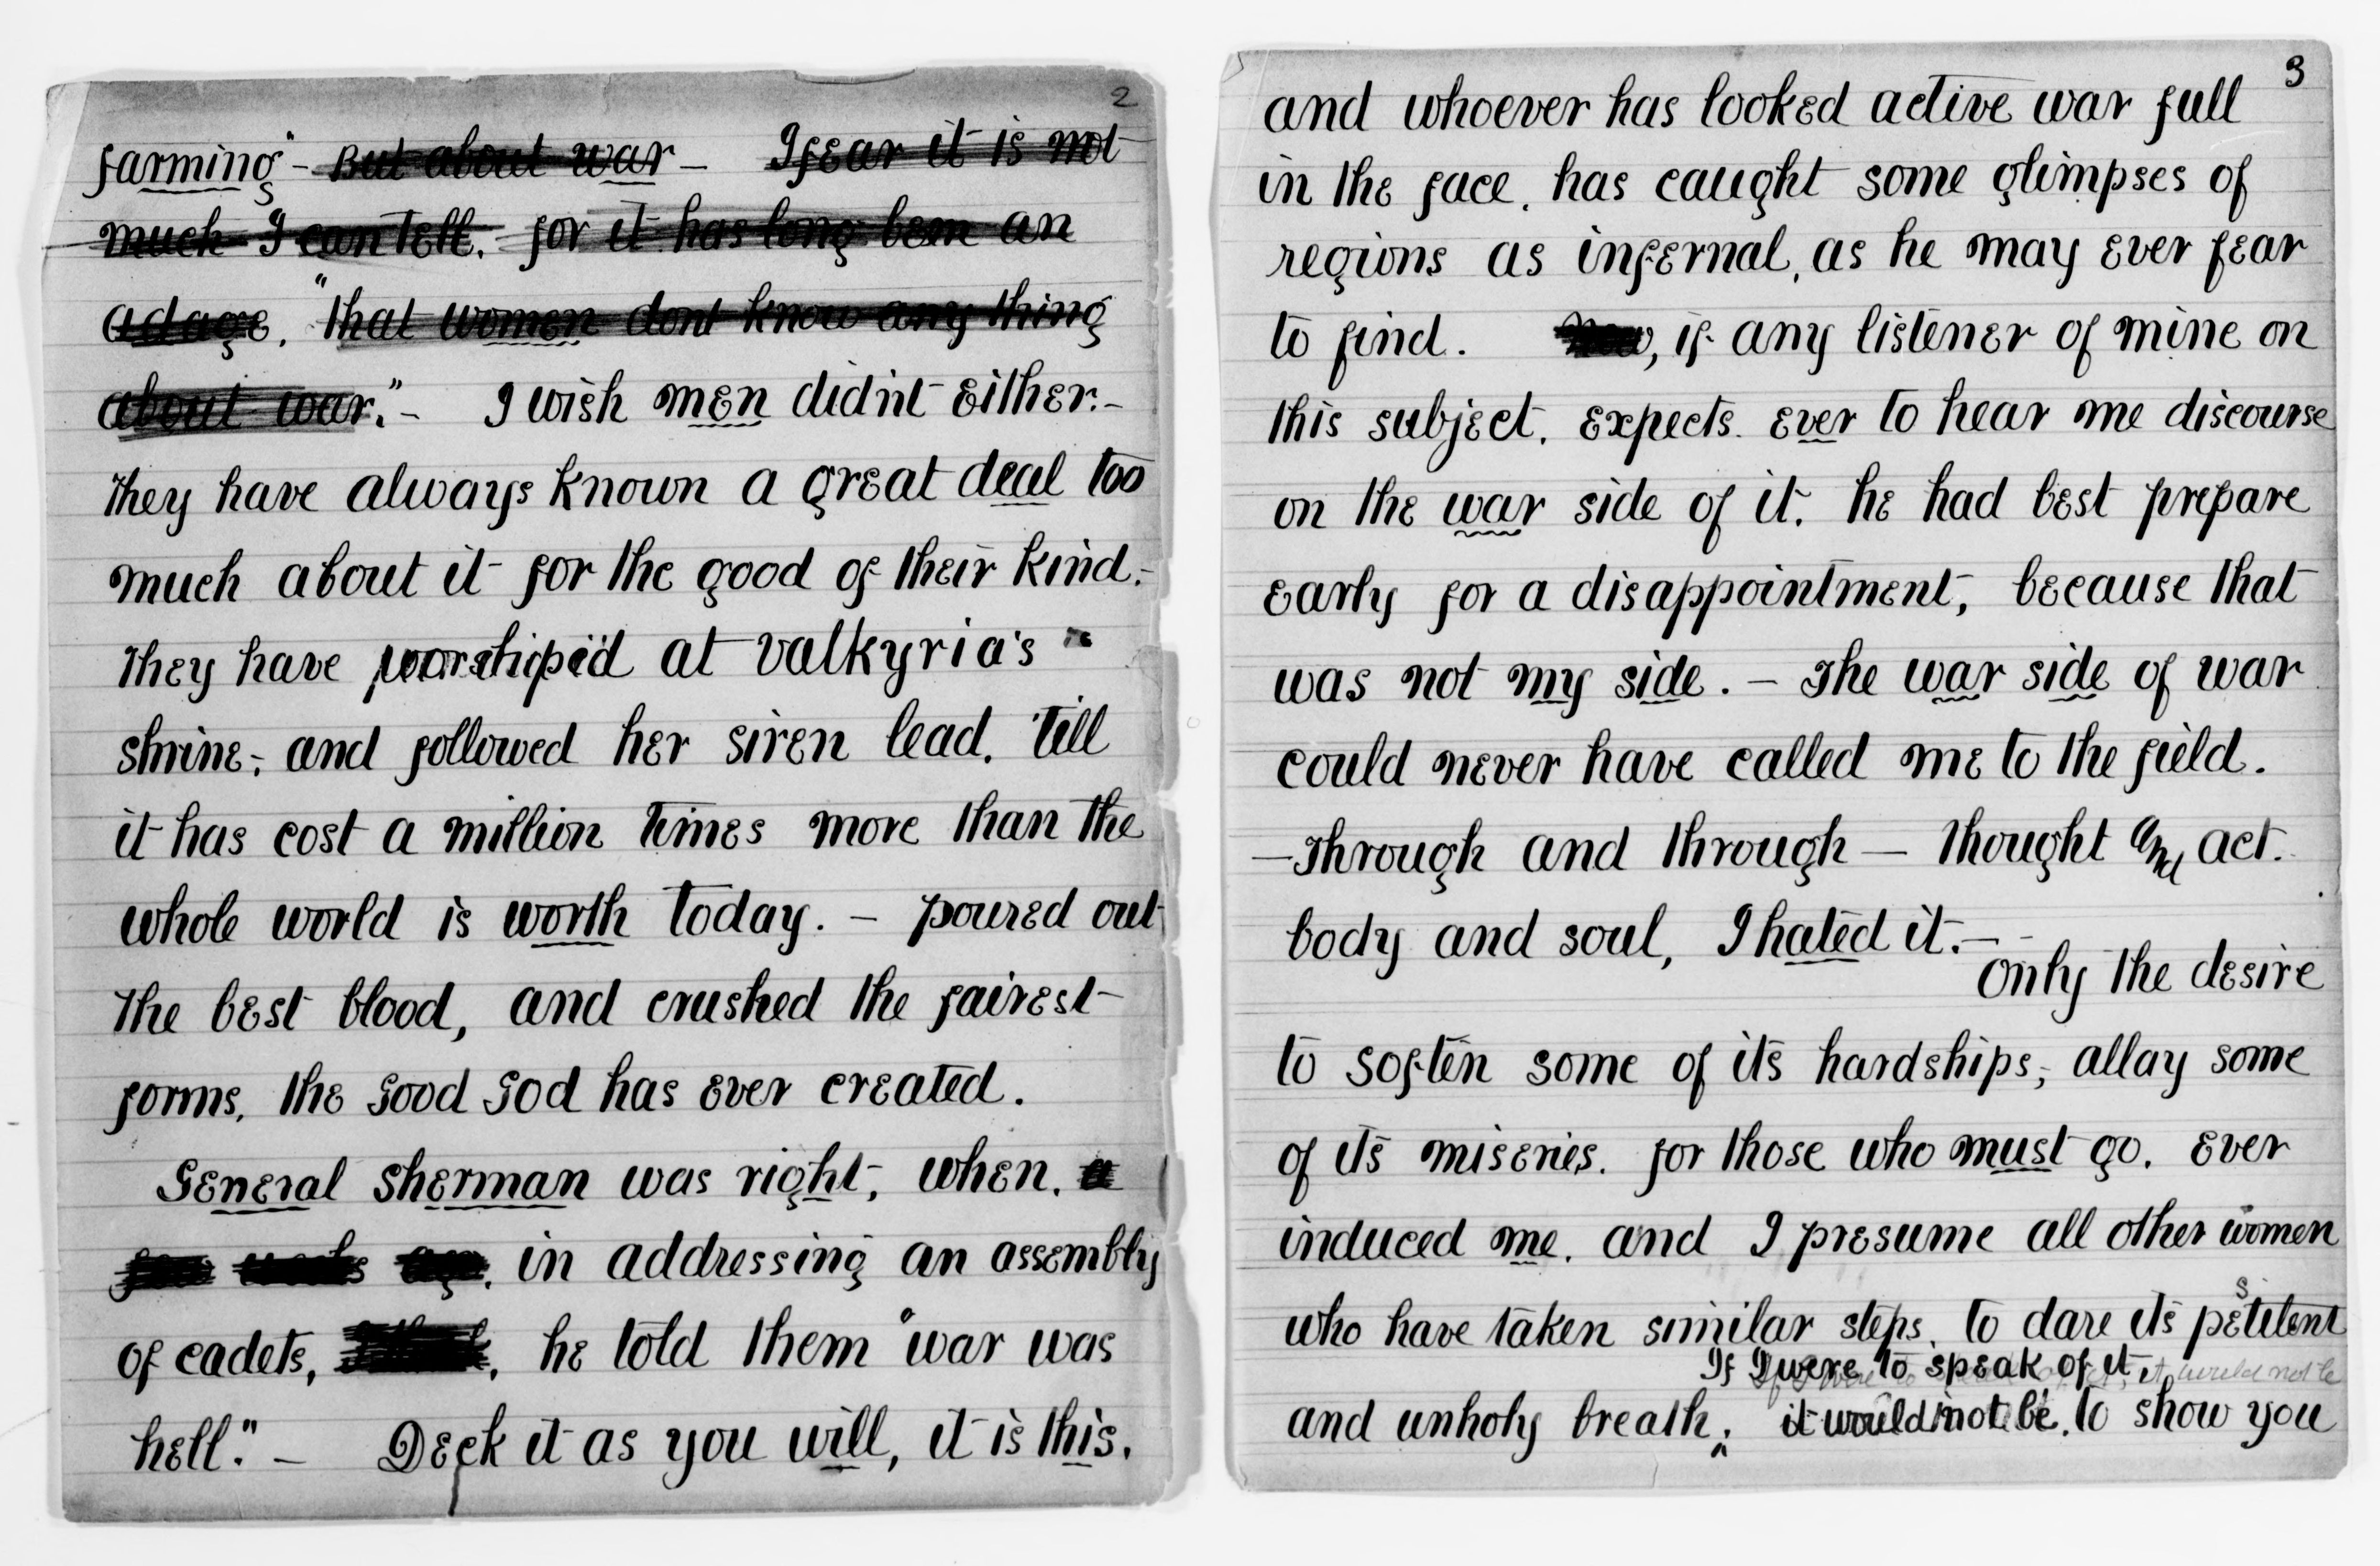 2
farming" - But about war - I fear it is not
much I can tell. for it has long been an
adage, "that women dont know any thing
about war." - I wish men didn't either. -
They have always known a great deal too
much about it for the good of their kind. -
They have worshiped at valkyria's
shrine, and followed her siren lead, till
it has cost a million times more than the
whole world is worth today. - poured out
the best blood, and crushed the fairest
forms, the good God has ever created.
General Sherman was right, when, a
few weeks ago, in addressing an assembly
of cadets, he told them "war was
hell." - Deck it as you will, it is this.
3
and whoever has looked active war full
in the face, has caught some glimpses of
regions as infernal, as he may ever fear
to find. Now, if any listener of mine on
this subject, expects ever to hear me discourse
on the war side of it, he had best prepare
early for a disappointment, because that
was not my side. - The war side of war
could never have called me to the field.
- Through and through - thought and act.
body and soul, I hated it. - -
Only the desire
to soften some of its hardships, allay some
of its miseries, for those who must go, ever
induced me, and I presume all other women
who have taken similar steps, to dare its pestilent
If I were to speak of it, it would not be
and unholy breath; it would not be, to show you